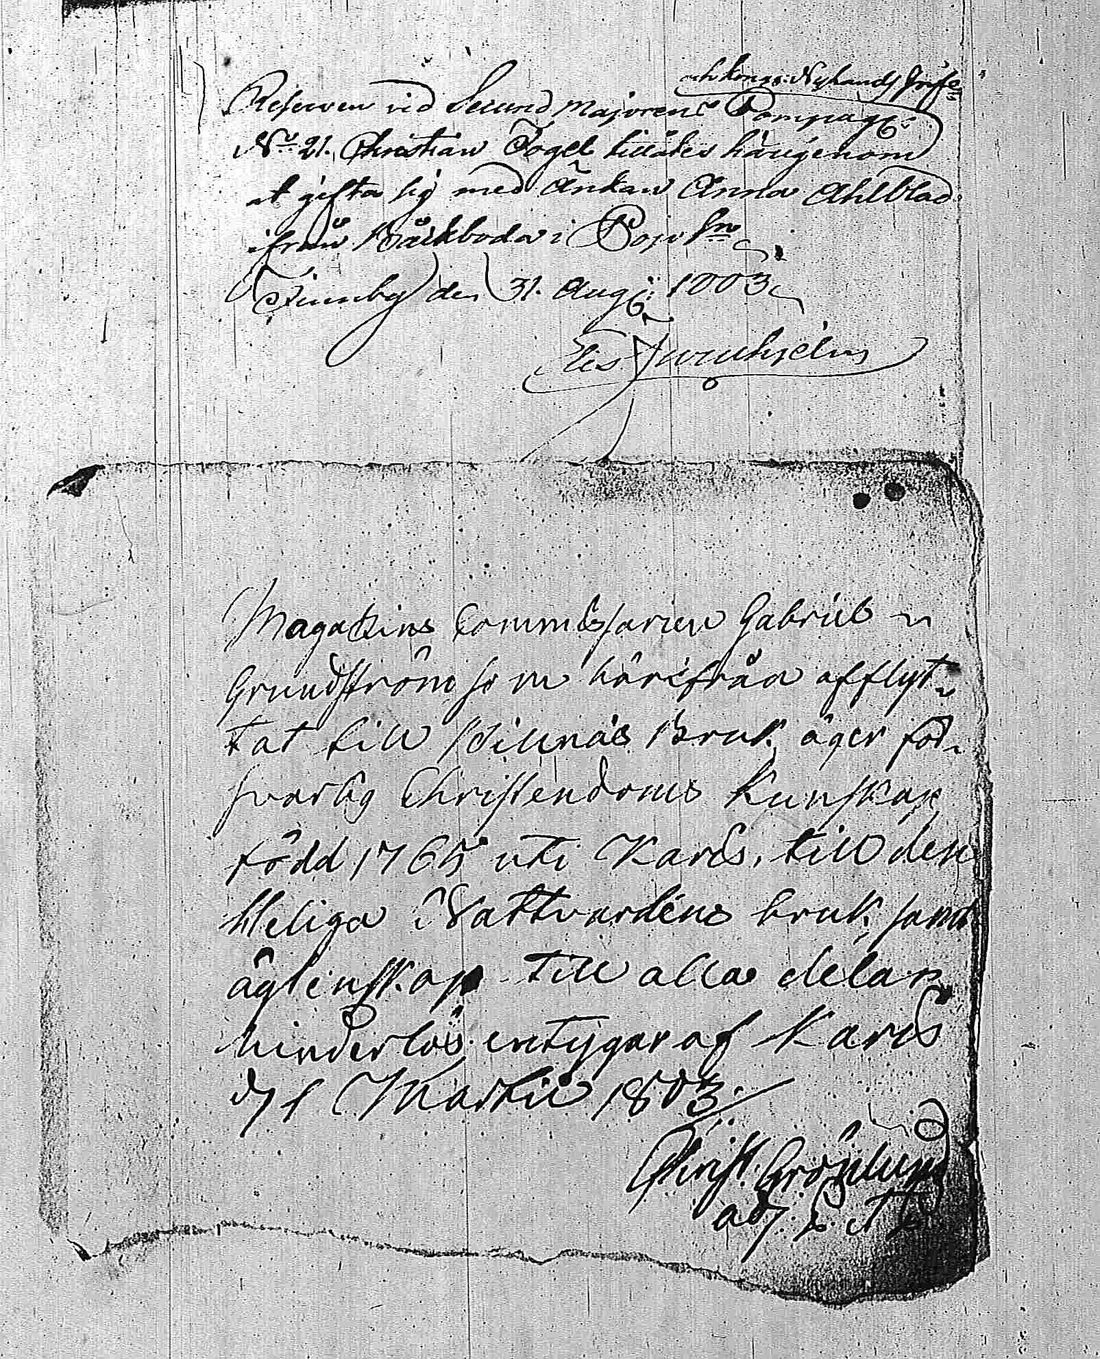 och Kongl. Nylands Infie
Reserven vid Secund Majorens Compagi:
No 21. Christian Fogel tillåtes härigenom
at gifta sig med Änkan Anna Ahlblad
ifrån Bäckboda i Pojo Sn
den 31. Augi: 1803.
Magazins Commissarien Gabriel
Grundström som härifrån afflyt-
tat till Billnäs Bruk, äger för-
svarlig Christendoms Kunskap
född 1765 uti Karis, till den
Heliga Nattvardens bruk, samt
ägtenskap till alla delar
hinderlös; intygar af Karis
d 1 Martii 1803.
Christ. Grönlund
adj.